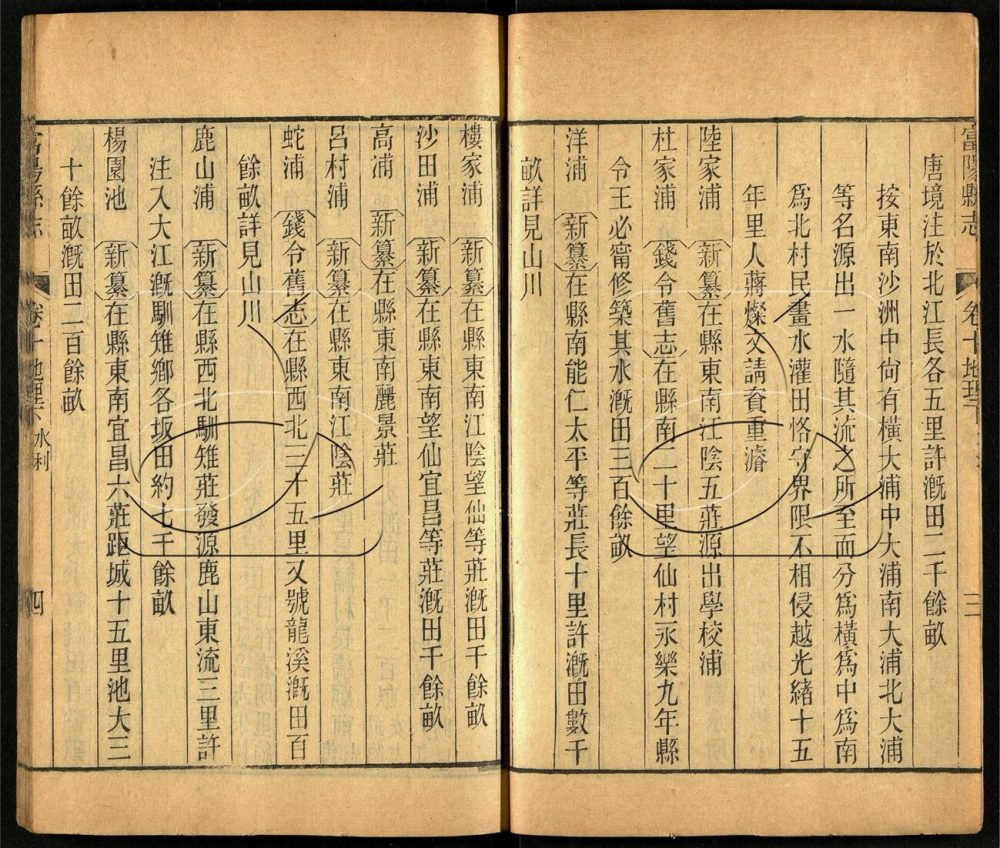 富陽縣志 卷十 地理 三
唐境注於北江長各五里許漑田二千餘畝
按東南沙洲中尙有橫大浦中大浦南大浦北大浦
等名源出一水隨其流之所至而分爲橫爲中爲南
爲北村民畫水灌田恪守界限不相侵越光緒十五
年里人蔣燦文請資重濬
陸家浦 新纂在縣東南江陰五莊源出學校浦
杜家浦 錢令舊志在縣南二十里望仙村永樂九年縣
令王必甯修築其水漑田三百餘畝
洋浦 新纂在縣南能仁太平等莊長十里許漑田數千
畝詳見山川
樓家浦 新纂在縣東南江陰望仙等莊漑田千餘畝
沙田浦 新纂在縣東南望仙宜昌等莊漑田千餘畝
高浦 新纂在縣東南麗景莊
呂村浦 新纂在縣東南江陰莊
蛇浦 錢令舊志在縣西北三十五里又號龍溪漑田百
餘畝詳見山川
鹿山浦 新纂在縣西北馴雉莊發源鹿山東流三里許
注入大江漑馴雉鄉各坂田約七千餘畝
楊園池 新纂在縣東南宜昌六莊距城十五里池大三
十餘畝漑田二百餘畝
富陽縣志 卷十 地理下 水利 四